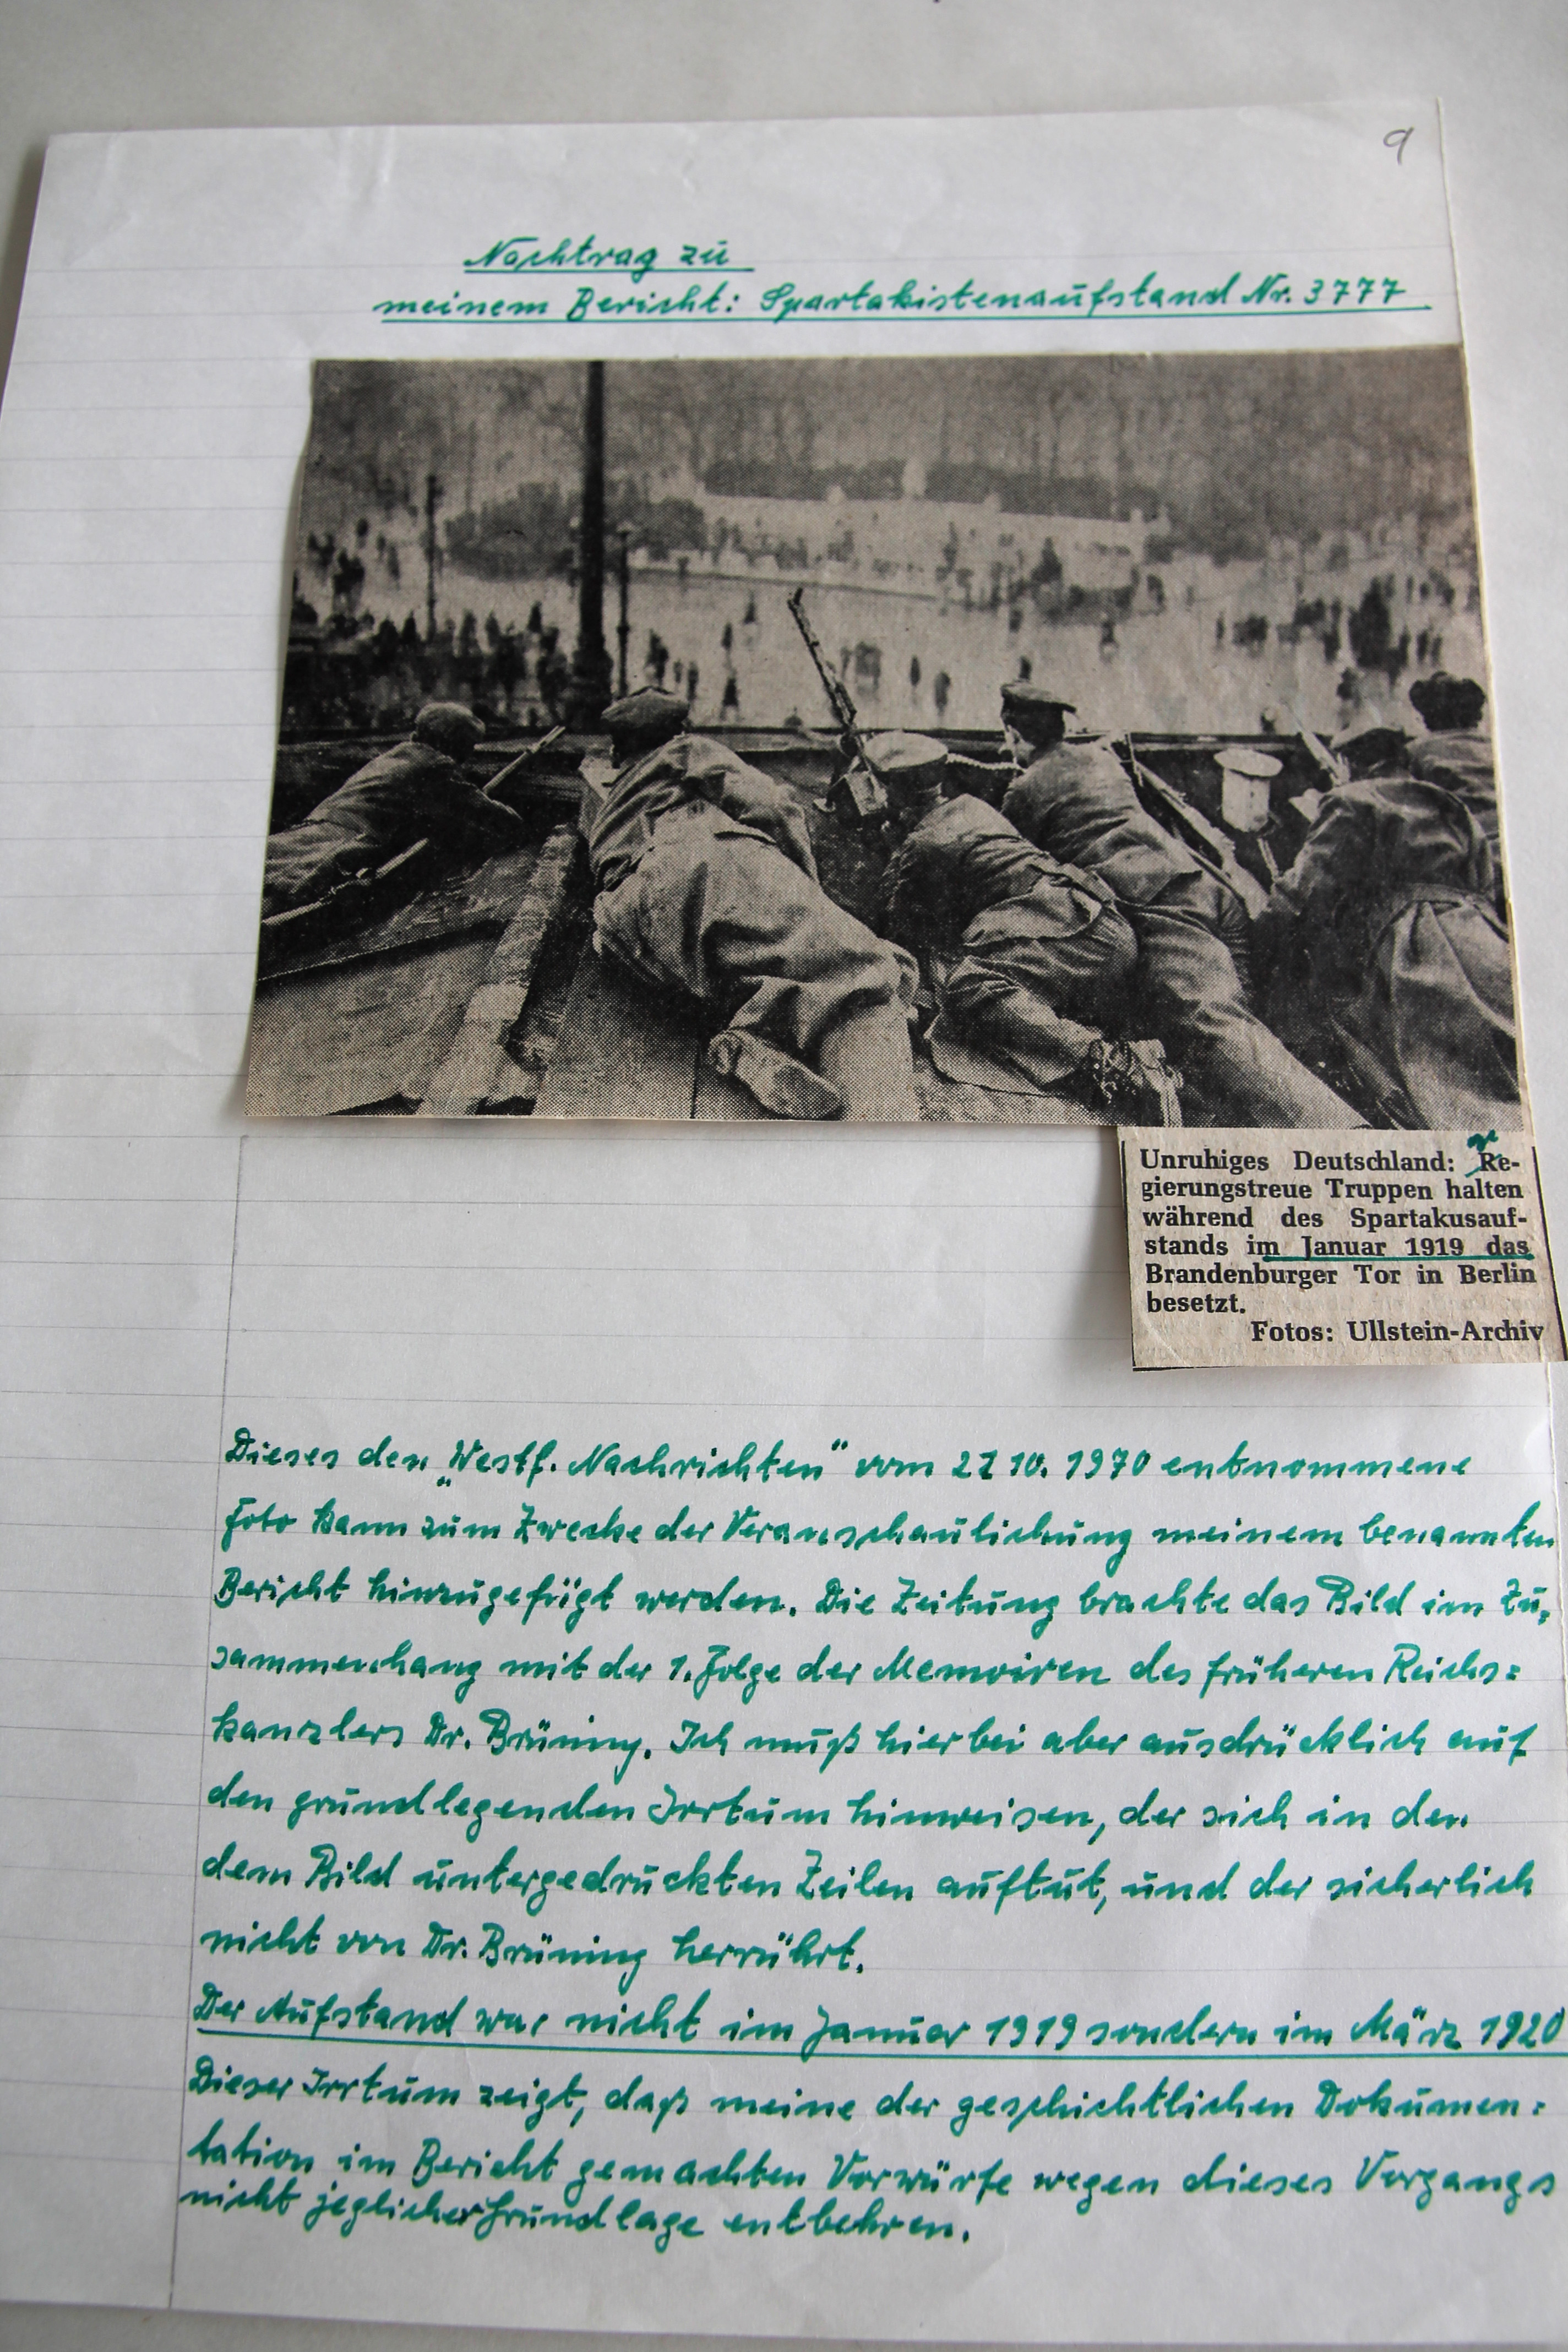 9
Nachtrag zu
meinem Bericht: Spartakistenaufstand Nr. 3777
Unruhiges Deutschland: Re-
gierungstreue Truppen halten
während des Spartakusauf-
stands im Januar 1919 das
Brandenburger Tor in Berlin
besetzt.
Fotos: Ullstein-Archiv
Dieses den „Westf. Nachrichten" vom 10. 1970 entnommene
Foto kann zum Zwecke der Veranschaulichung meinem benannten
Bericht hinzugefügt werden. Die Zeitung brachte das Bild im Zu-
sammenhang mit der 1. Folge der Memoiren des früheren Reichs=
kanzlers Dr. Brüning. Ich muß hierbei aber ausdrücklich auf
den grundlegenden Irrtum hinweisen, der sich in den
dem Bild untergedruckten Zeilen auftut, und der sicherlich
nicht von Dr. Brüning herrührt.
Der Aufstand war nicht im Januar 1919 sondern im März 1920
Dieser Irrtum zeigt, daß meine der geschichtlichen Dokumen=
tation im Bericht gemachten Vorwürfe wegen dieses Vorgangs
nicht jeglicher Grundlage entbehren.